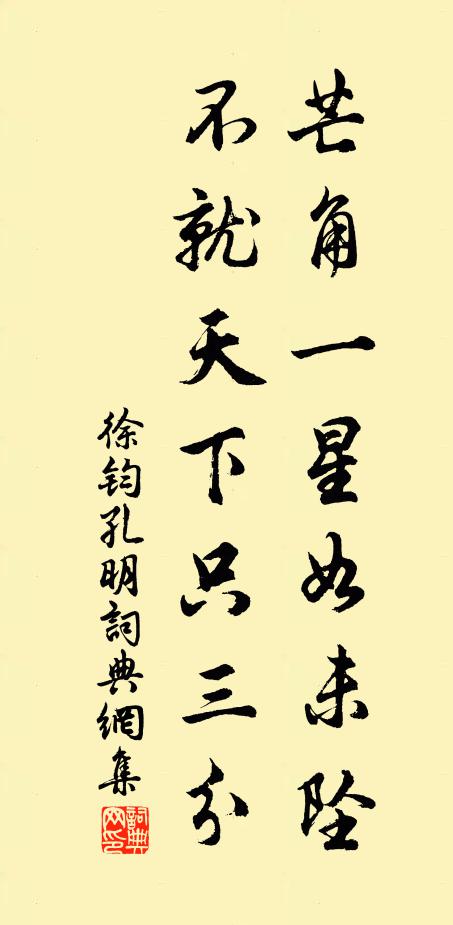 芒角一星如未坠
不就天下只三分
徐钧孔明詞典網集
詞典网印